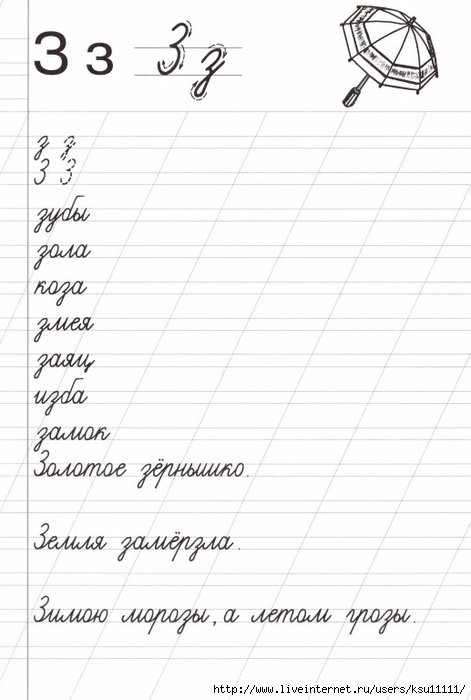 З з З з
з з
З З
зубы
зола
коза
змея
заяц
изба
замок
Золотое зёрнышко.
Земля замёрзла.
Зимою морозы, а летом грозы.
http://www.liveinternet.ru/users/ksu11111/